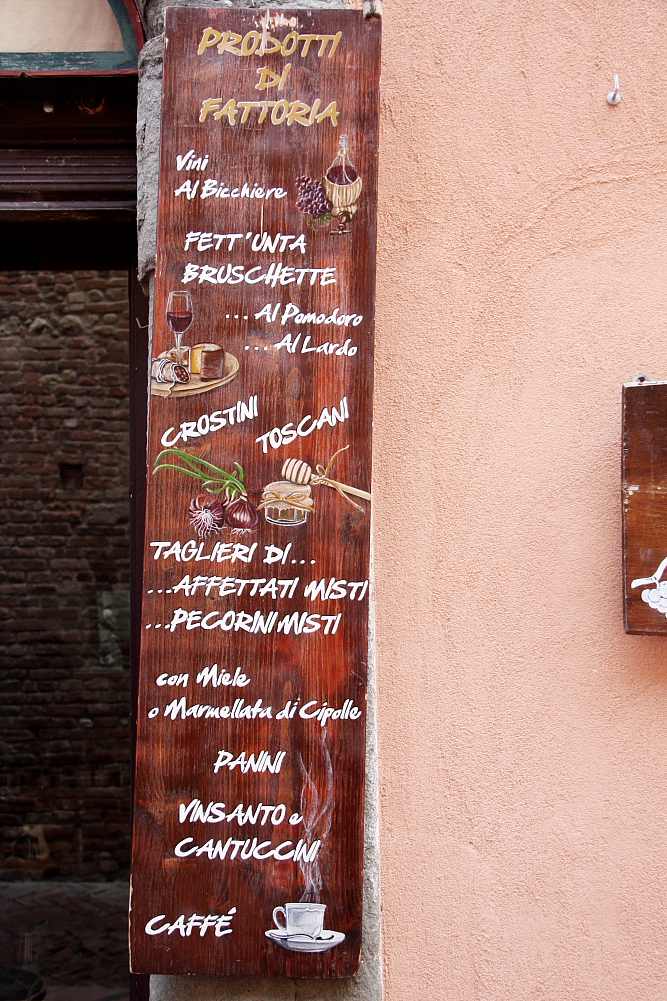 PRODOTTI
DI
FATTORIA
Vini
Al Bicchiere
FETT'UNTA
BRUSCHETTE
... Al Pomodoro
... Al Lardo
CROSTINI TOSCANI
TAGLIERI DI...
...AFFETTATI MISTI
...PECORINI MISTI
con Miele
o Marmellata di Cipolle
PANINI
VINSANTO e
CANTUCCINI
CAFFÉ